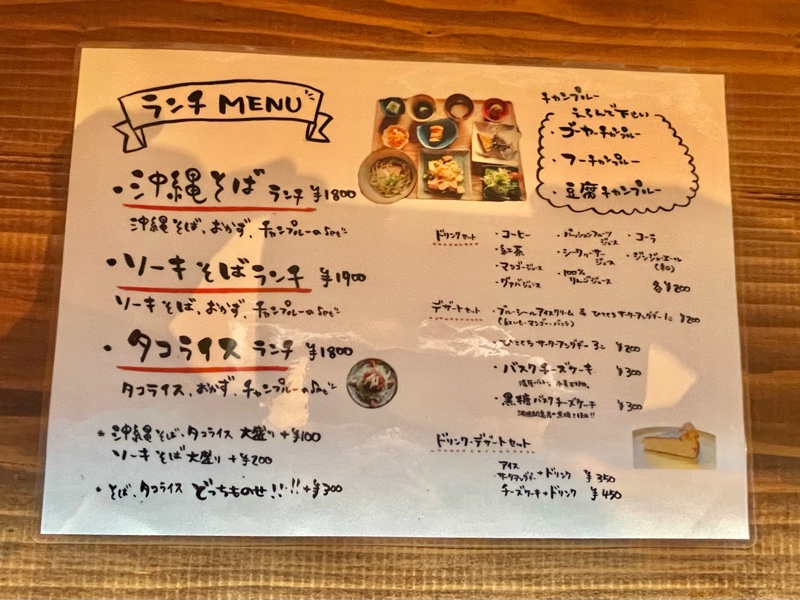 ランチ MENU
・沖縄そば ランチ ¥1800
沖縄そば、おかず、チャンプルーのSetで
・ソーキそばランチ ¥1900
ソーキそば、おかず、チャンプルーのSetで
・タコライス ランチ ¥1800
タコライス、おかず、チャンプルーのSetで
* 沖縄そば、タコライス 大盛り +¥100
ソーキそば大盛り +¥200
* そば、タコライス どっちものせ!! !! +¥300
チャンプルー
えらんで下さい
・ゴーヤーチャンプルー
・フーチャンプルー
・豆腐チャンプルー
ドリンクセット
・コーヒー
・紅茶
・マンゴージュース
・グァバジュース
・パッションフルーツ
ジュース
・シークヮーサー
ジュース
・100%
りんごジュース
・コーラ
・ジンジャエール
(辛口)
各¥200
デザートセット
・ブルーシールアイスクリーム & ひとくちサーターアンダギー1コ ¥200
・ひとくちサーターアンダギー3コ ¥200
・バスクチーズケーキ ¥300
・黒糖バスクチーズケーキ ¥300
ドリンク・デザートセット
アイス
サーターアンダギー +ドリンク ¥350
チーズケーキ+ドリンク ¥450